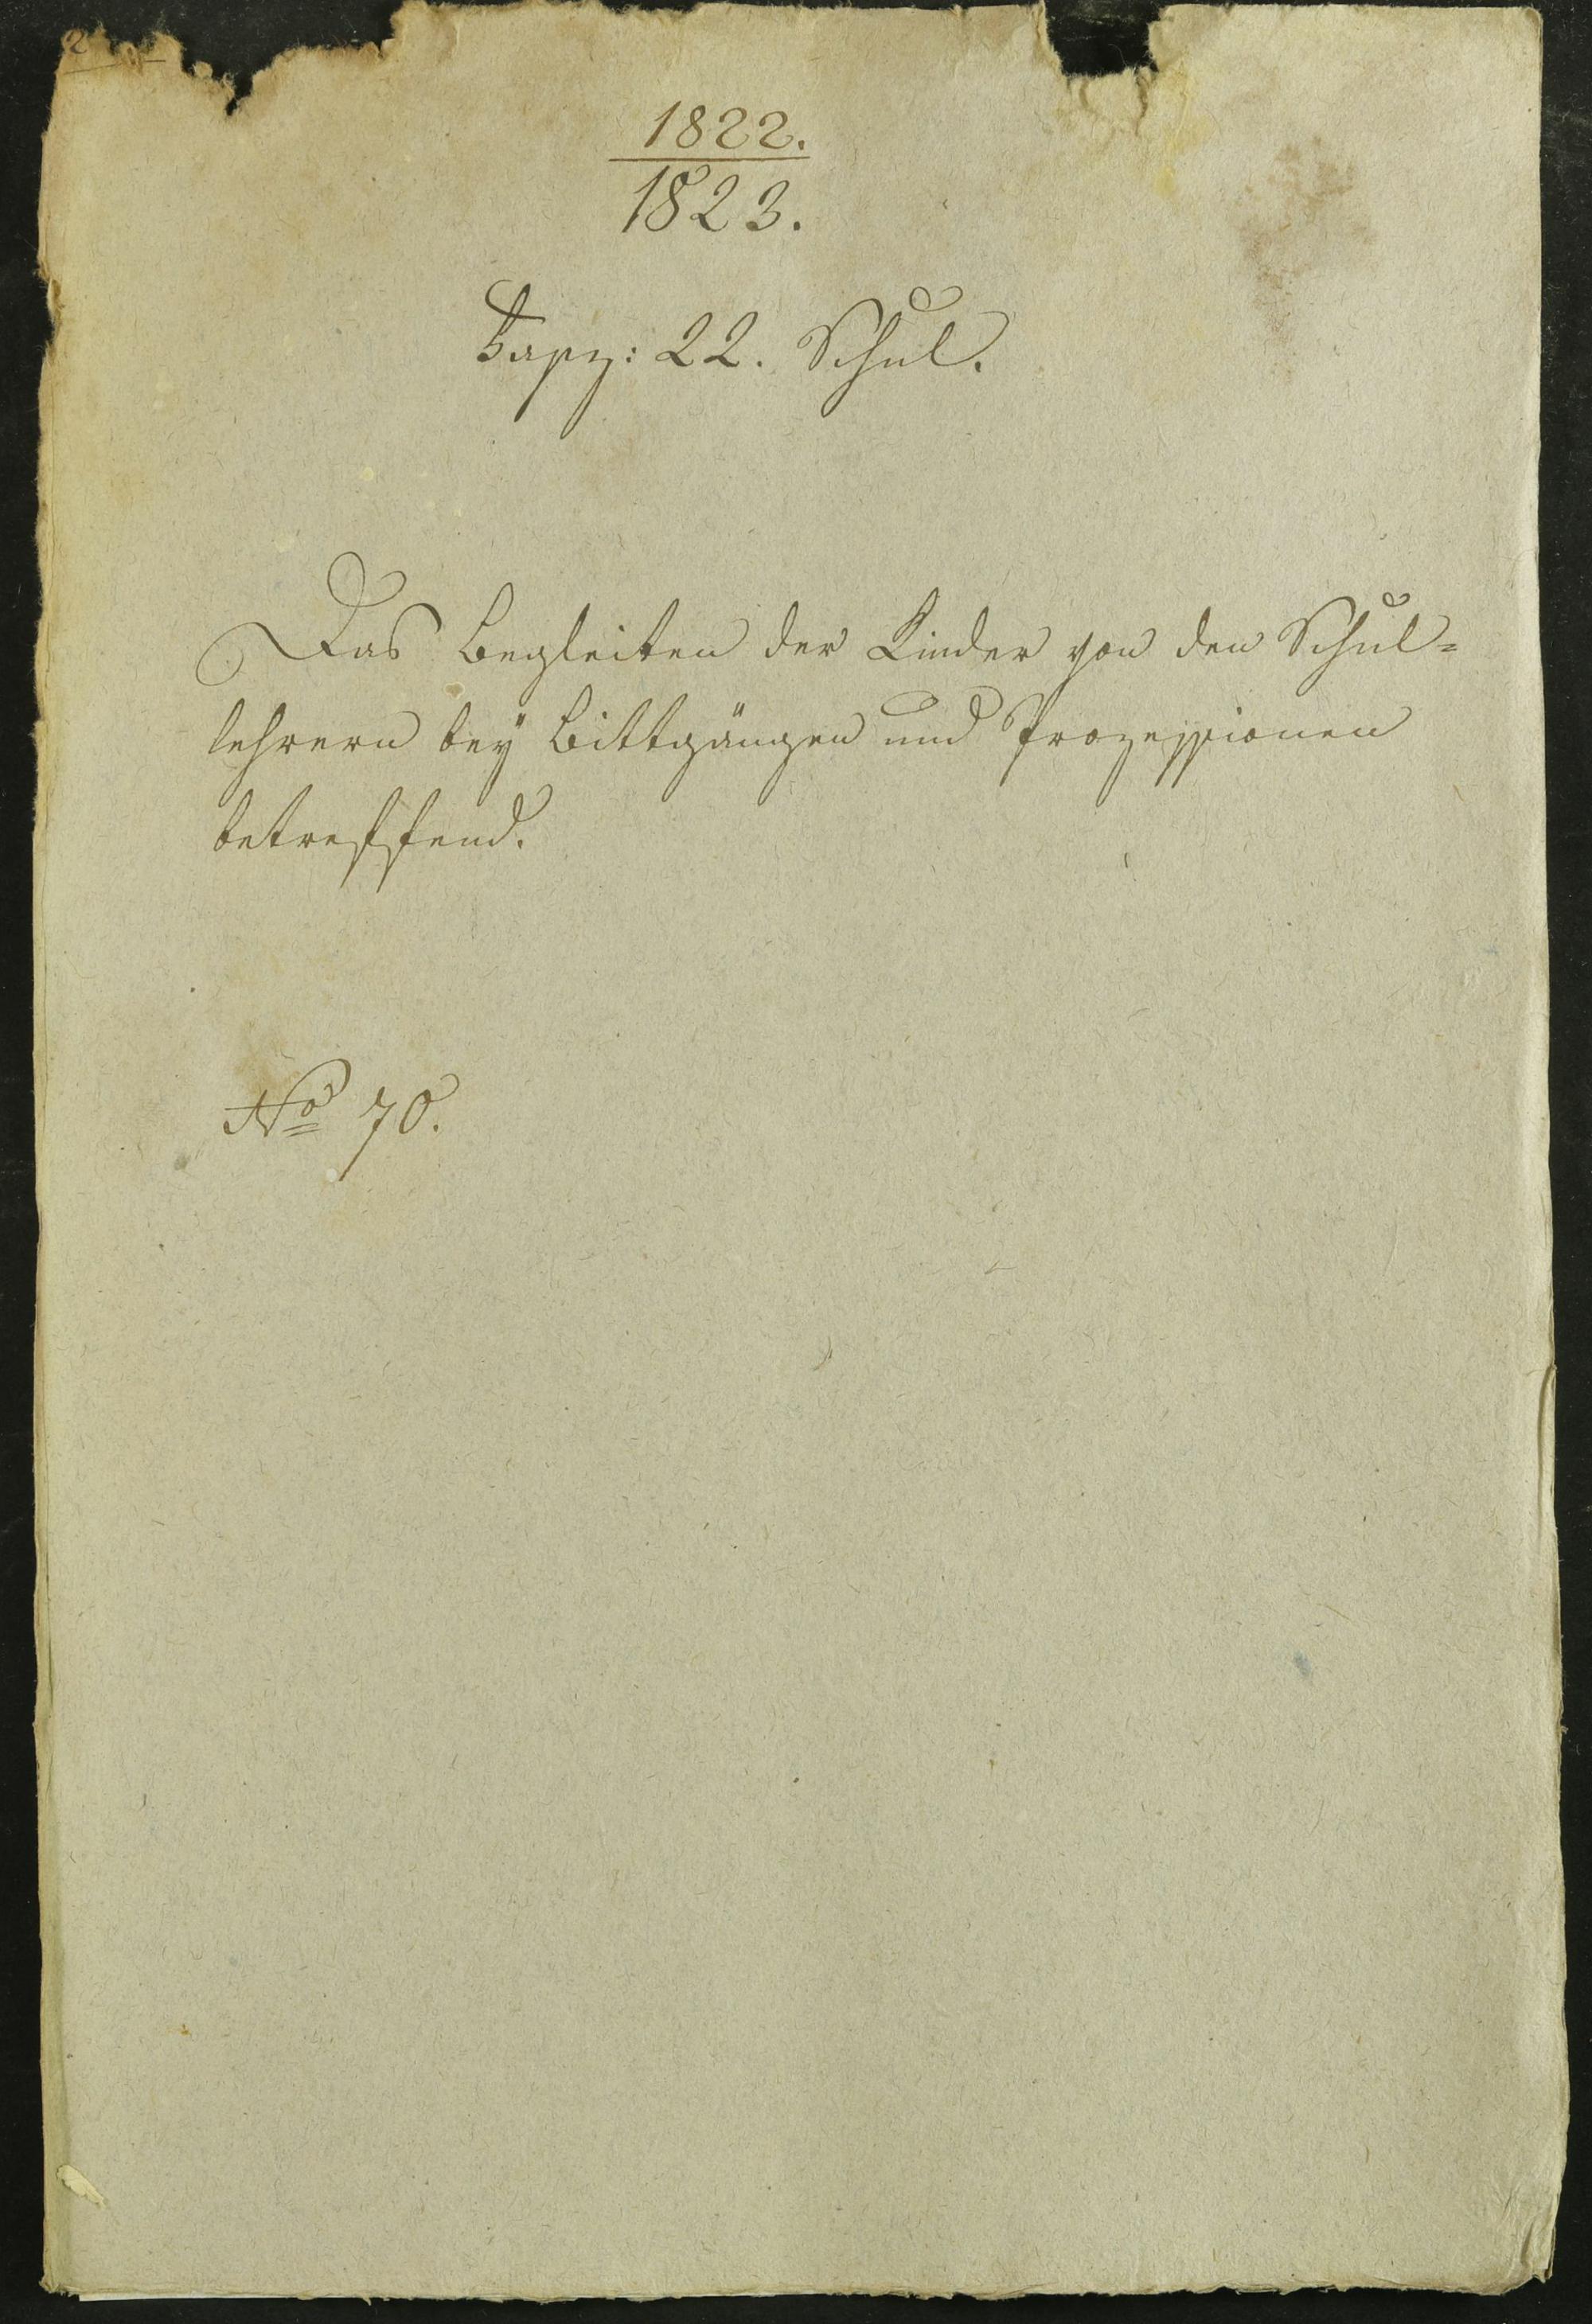 1822.
1823.
Fasz: 22. Schul.
Das Begleiten der Kinder von den Schul=
lehrern beÿ Bittgängen und Prozessionen
betreffend.
No 70.